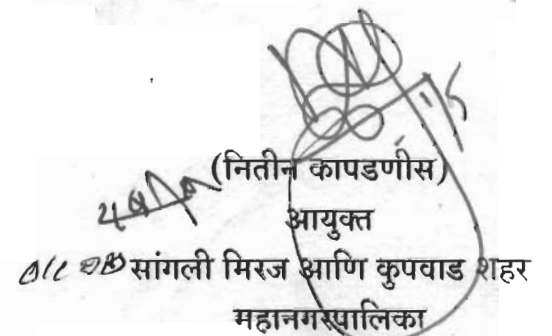 (नितीन कापडणीस)
आयुक्त
सांगली मिरज आणि कुपवाड शहर
महानगरपालिका